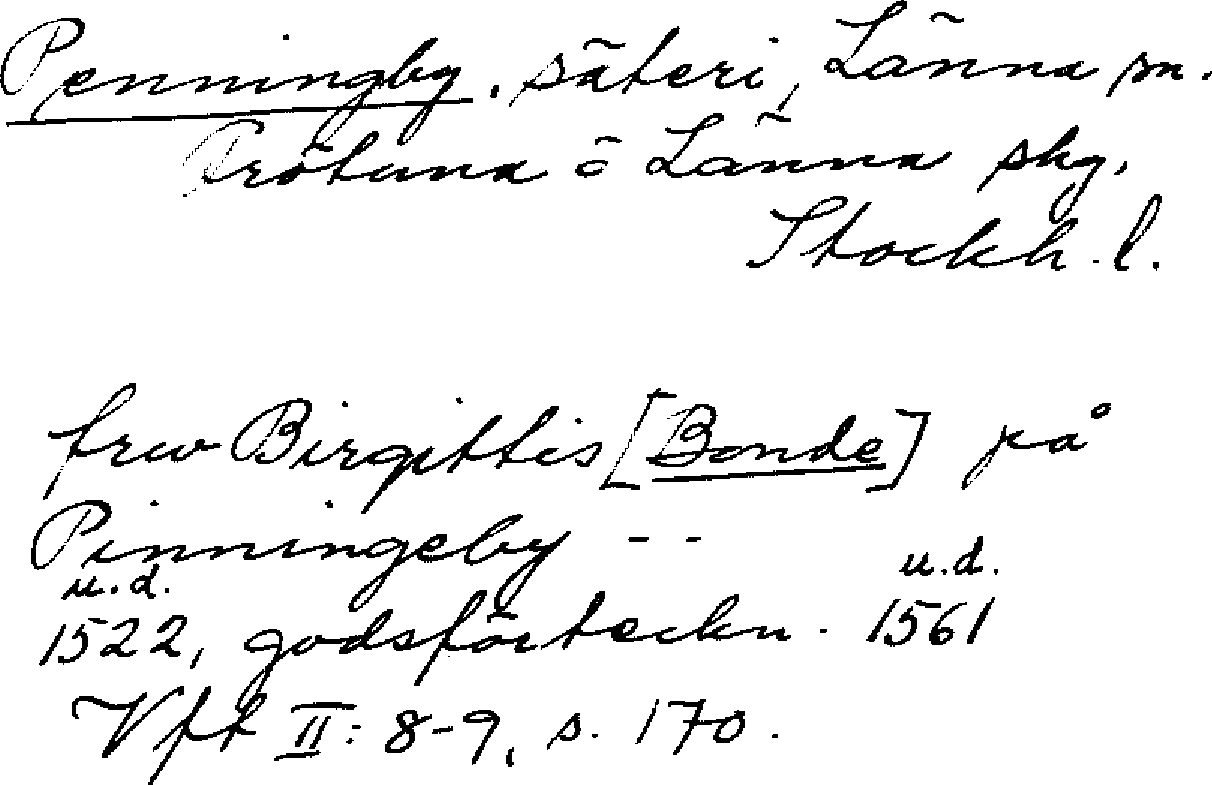 Penningby. säteri, Länna sn.
Frötuna o Länna skg,
Stockh. l.
frw Birgittis [Bonde] på
Pinningeby --
u.d. u.d.
1522, godsförteckn. 1561
Vft II: 8-9, s. 170.